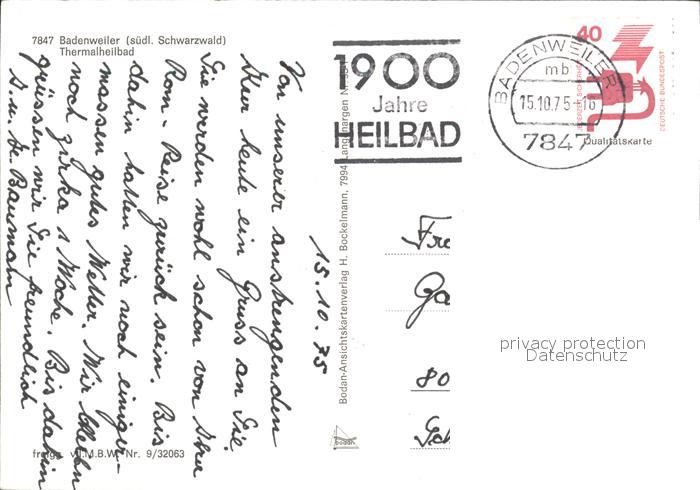 7847 Badenweiler (südl. Schwarzwald)
Thermalheilbad
15.10.75
Von unserer anstrengenden
Kur heute ein Gruss an Sie.
Sie werden wohl schon von Ihrer
Rom-Reise zurück sein. Bis
dahin hatten wir noch einiger-
massen gutes Wetter. Wir bleiben
noch zirka 1 Woche. Bis dahin
grüssen wir Sie freundlich
Baumann
1900
Jahre
HEILBAD
BADENWEILER
mb
15.10.75-18
7847
40
DEUTSCHE BUNDESPOST
Qualitätskarte
Bodan-Ansichtskartenverlag H. Bockelmann, 7994 Langenargen
Fre
Ga
80
Sch
privacy protection
Datenschutz
bodan
freigg. v. I.M.B.W. Nr. 9/32063